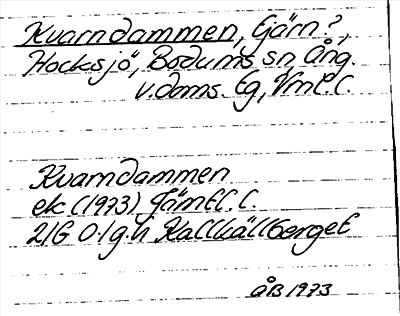 Kvarndammen, tjärn?,
Hocksjö, Bodums sn, Ång.
v. dams. Eg, Vml.l.
Kvarndammen
ek (1973) Jämtl.l.
21G 0-1 g.h Kallkällberget
ÅB 1973